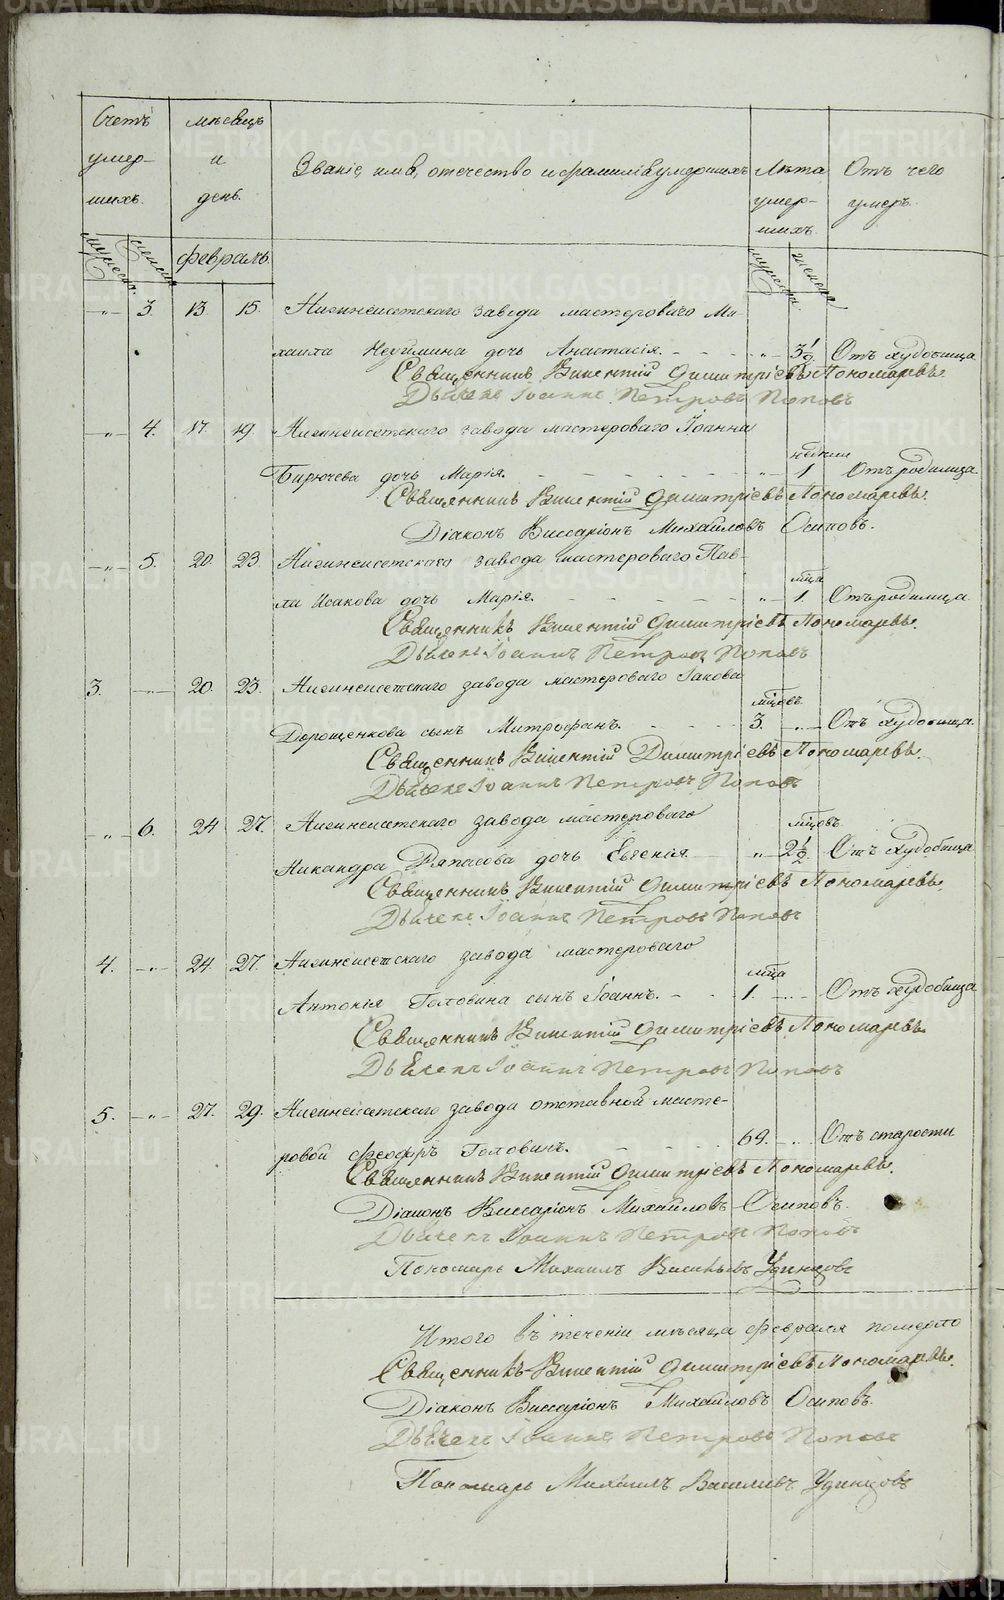 METRIKI.GASO-URAL.RU
Счетъ умер- шихъ.
мѣсяцъ и день.
Званіе, имя, отечество и фамилія умершихъ
Лѣта умер- шихъ.
Отъ чего умеръ.
мужеска. женска
февраль.
мужеска. женска
-"- 3. 13. 15. Нижнеисетскаго завода мастероваго Ми-
хаила дочь Анастасія. " 3½ Отъ худобища
Священникъ Викентій Димитріевъ Пономаревъ.
Дьячекъ Іоаннъ Петровъ Поповъ
-"- 4. 17. 19. Нижнеисетскаго завода мастероваго Іоанна
недѣли
Бирючева дочь Марія. -"- 1 Отъ родимца
Священникъ Викентій Димитріевъ Пономаревъ.
Діаконъ Виссаріонъ Михайловъ Осиповъ.
-"- 5. 20. 23. Нижнеисетскаго завода мастероваго Пав-
мца
ла Исакова дочь Марія. -"- 1. Отъ родимца
Священникъ Викентій Димитріевъ Пономаревъ.
Дьячекъ Іоаннъ Петровъ Поповъ
3. -"- 20. 23. Нижнеисетскаго завода мастероваго Іакова
мцовъ
Дорощенкова сынъ Митрофанъ. 3. -"- Отъ худобища.
Священникъ Викентій Димитріевъ Пономаревъ.
Дьячекъ Іоаннъ Петровъ Поповъ
-"- 6. 24 27. Нижнеисетскаго завода мастероваго
мцовъ.
Никандра дочь Евгенія. " 2½ Отъ худобища
Священникъ Викентій Димитріевъ Пономаревъ.
Дьячекъ Іоаннъ Петровъ Поповъ
4. -"- 24. 27. Нижнеисетскаго завода мастероваго
мца
Антонія Головина сынъ Іоаннъ. 1. -"- Отъ худобища
Священникъ Викентій Димитріевъ Пономаревъ.
Дьячекъ Іоаннъ Петровъ Поповъ
5. -"- 27. 29. Нижнеисетскаго завода отставной масте-
ровой Феодоръ Головинъ. 69. Отъ старости
Священникъ Викентій Димитріевъ Пономаревъ.
Діаконъ Виссаріонъ Михайловъ Осиповъ.
Дьячекъ Іоаннъ Петровъ Поповъ
Пономарь Михаилъ Васильевъ Удинцовъ
Итого въ теченіи мѣсяца февраля померло
Священникъ Викентій Димитріевъ Пономаревъ.
Діаконъ Виссаріонъ Михайловъ Осиповъ.
Дьячекъ Іоаннъ Петровъ Поповъ
Пономарь Михаилъ Васильевъ Удинцовъ